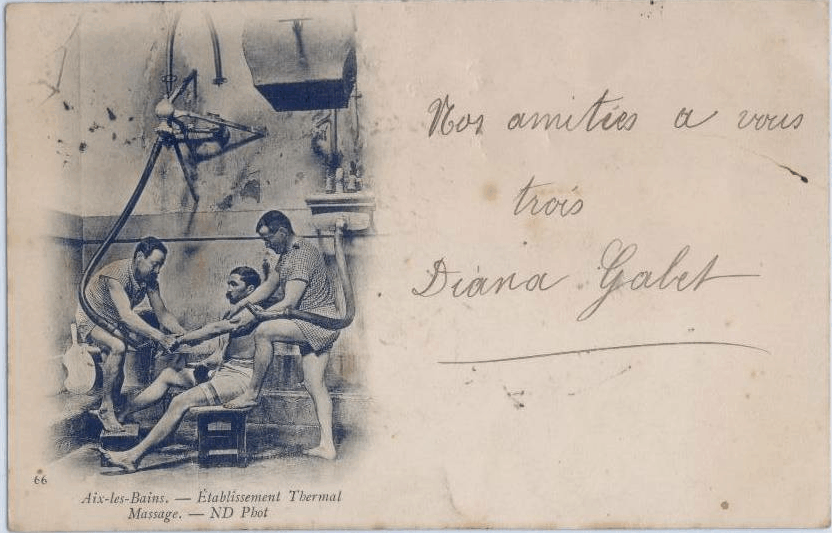 Nos amitiés a vous
trois
Diana Galet
66
Aix-les-Bains. — Établissement Thermal
Massage. — ND Phot